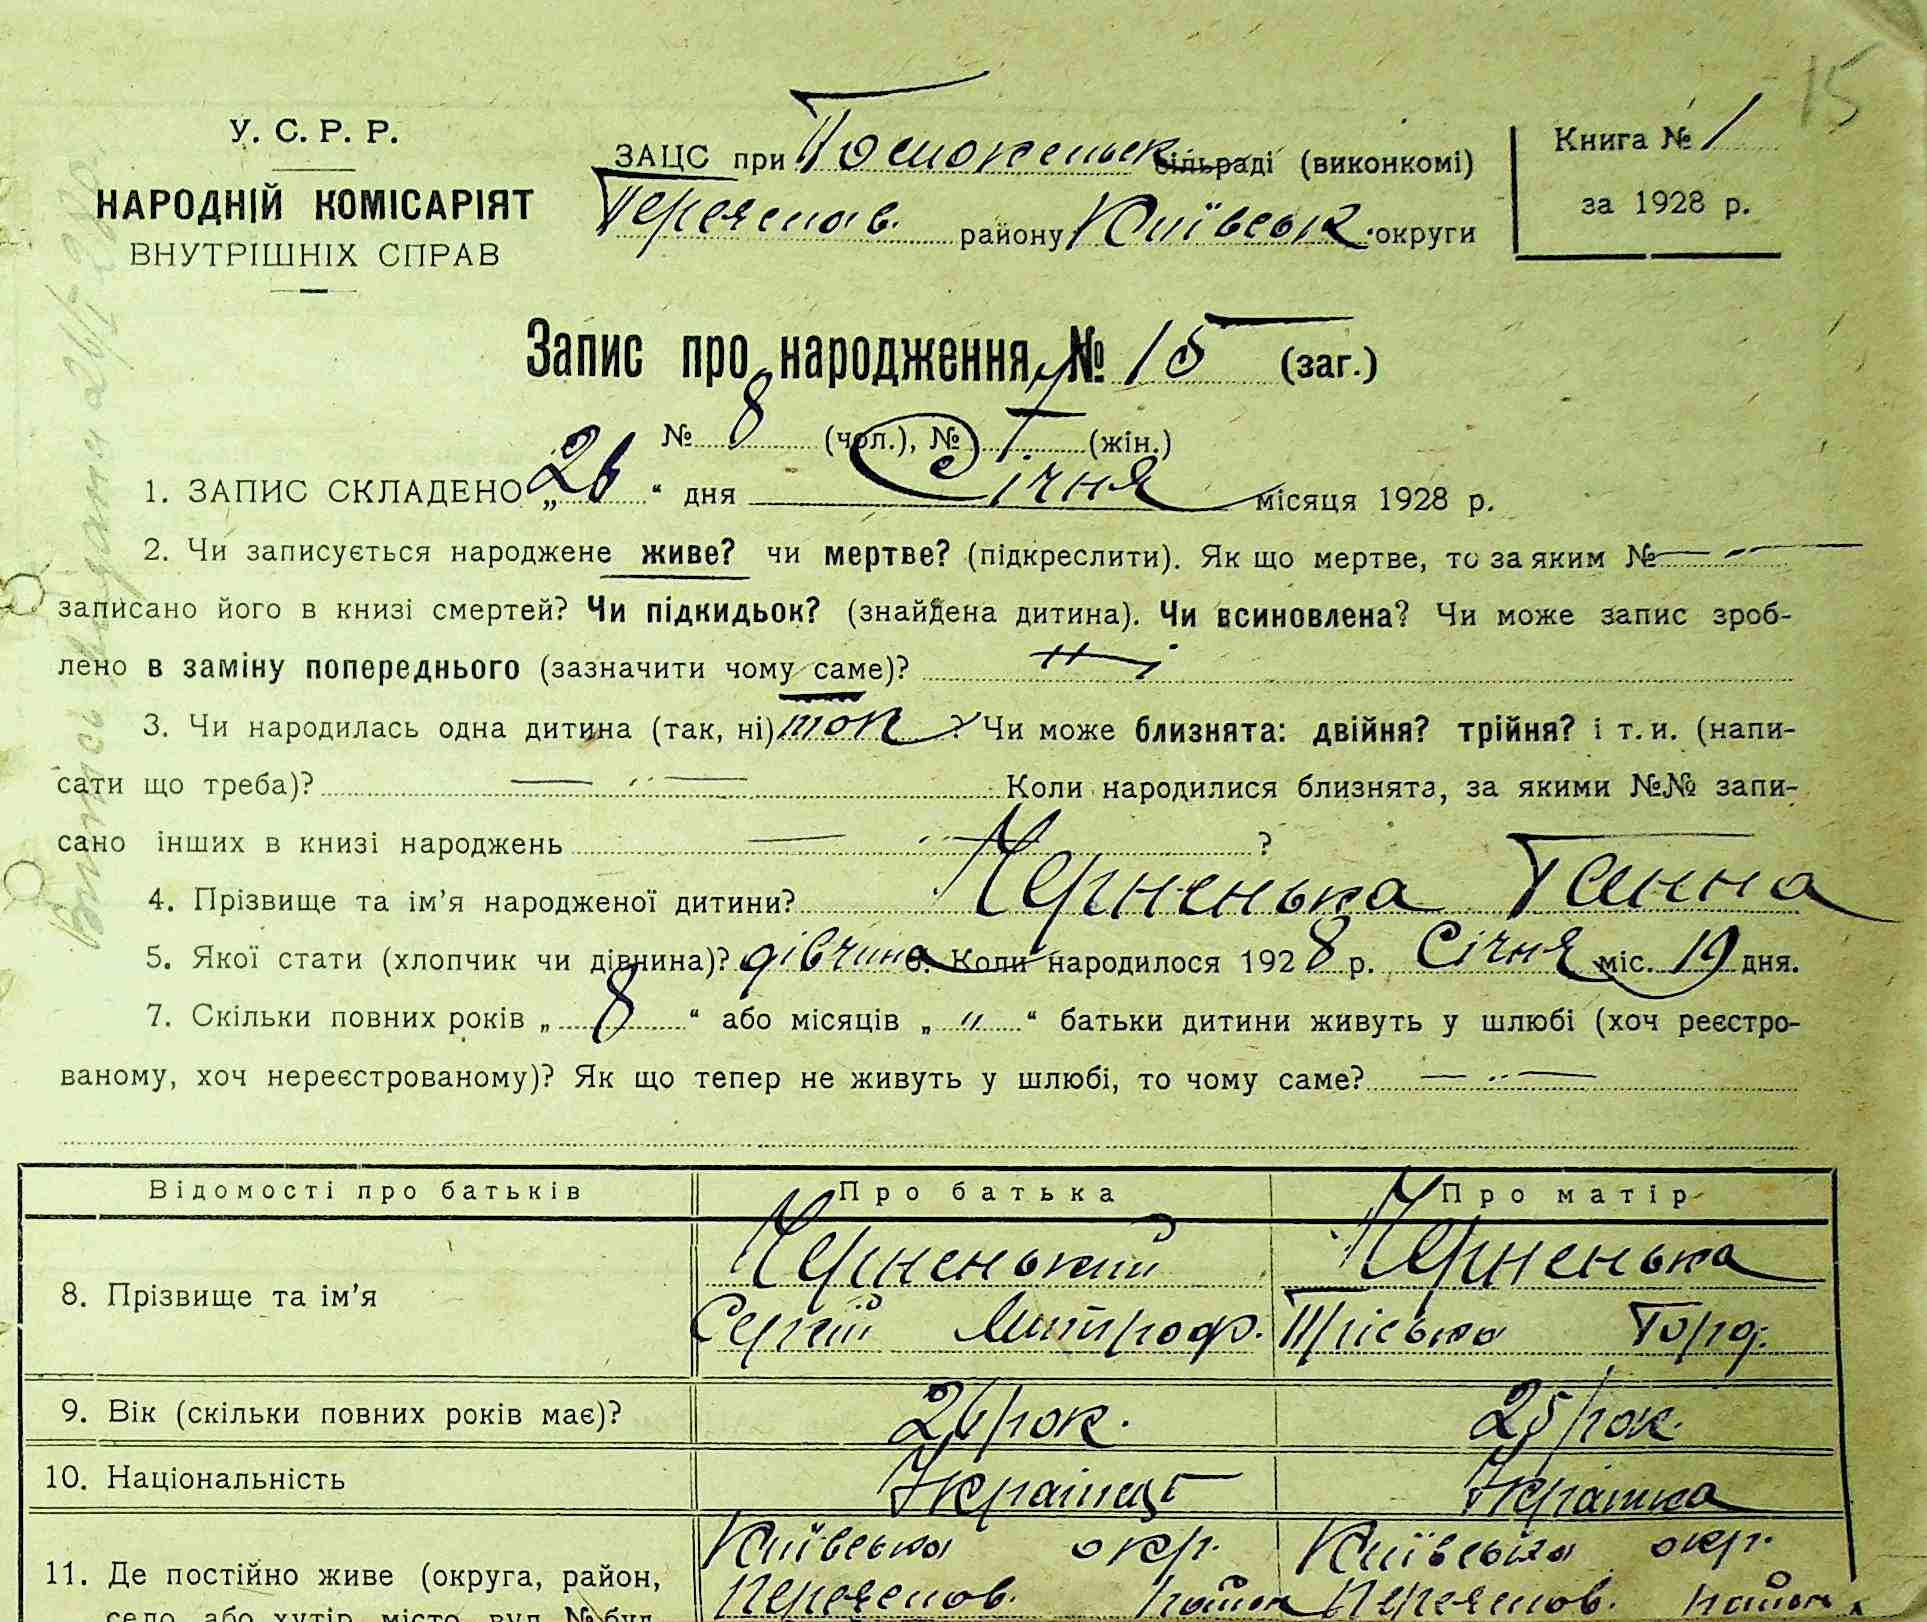 15
У. С. Р. Р.
НАРОДНІЙ КОМІСАРІЯТ
ВНУТРІШНІХ СПРАВ
ЗАЦС при сільраді (виконкомі)
Переяслав. району Київськ. округи
Книга № 1
за 1928 р.
Запис про народження № 15 (заг.)
№ 8 (чол.), № 7 (жін.)
1. ЗАПИС СКЛАДЕНО „26“ дня Січня місяця 1928 р.
2. Чи записується народжене живе? чи мертве? (підкреслити). Як що мертве, то за яким № — „ —
записано його в книзі смертей? Чи підкидьок? (знайдена дитина). Чи всиновлена? Чи може запис зроб-
лено в заміну попереднього (зазначити чому саме)? ні
3. Чи народилась одна дитина (так, ні) так ? Чи може близнята: двійня? трійня? і т. и. (напи-
сати що треба)? — „ — Коли народилися близнята, за якими №№ запи-
сано інших в книзі народжень — „ — ?
4. Прізвище та ім’я народженої дитини? Черненька Ганна
5. Якої стати (хлопчик чи дівчина)? дівчина 6. Коли народилося 1928 р. Січня міс. 19 дня.
7. Скільки повних років „ 8 “ або місяців „ „ “ батьки дитини живуть у шлюбі (хоч реєстро-
ваному, хоч нереєстрованому)? Як що тепер не живуть у шлюбі, то чому саме? — „ —
Відомості про батьків Про батька Про матір
8. Прізвище та ім’я Черненький Черненька
Сергій Митроф. Пріська Горд.
9. Вік (скільки повних років має)? 26 рок. 25 рок.
10. Національність Українець Українка
11. Де постійно живе (округа, район, Київська окр. Київська окр.
село або хутір, місто, вул. № буд. Переяслав. район Переяслав. район